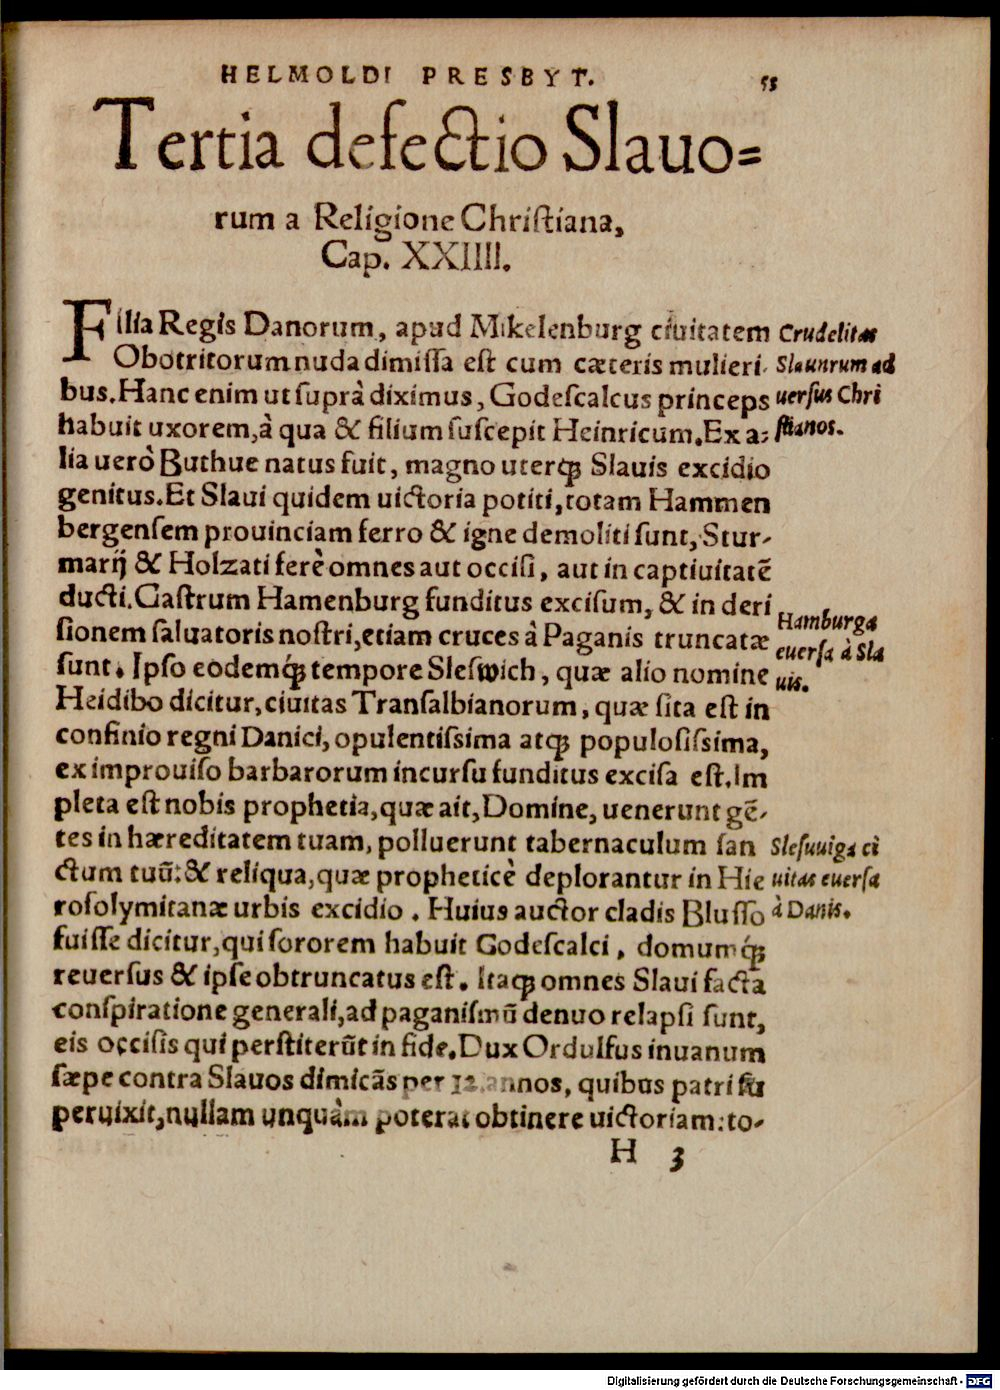 HELMOLDI PRESBYT. 55
Tertia defectio Slauo=
rum a Religione Christiana,
Cap. XXIIII.
FIlia Regis Danorum, apud Mikelenburg ciuitatem
Obotritorum nuda dimissa est cum cæteris mulieri-
bus. Hanc enim ut suprà diximus, Godescalcus princeps
habuit uxorem, à qua & filium suscepit Heinricum. Ex a=
lia uerò Buthue natus fuit, magno uterq́ꝫ Slauis excidio
genitus. Et Slaui quidem uictoria potiti, totam Hammen
bergensem prouinciam ferro & igne demoliti sunt, Stur-
marij & Holzati ferè omnes aut occisi, aut in captiuitatē
ducti. Castrum Hamenburg funditus excisum, & in deri
sionem saluatoris nostri, etiam cruces à Paganis truncatæ
sunt. Ipso eodemq́ꝫ tempore Sleswich, quæ alio nomine
Heidibo dicitur, ciuitas Transalbianorum, quæ sita est in
confinio regni Danici, opulentissima atqꝫ populosissima,
ex improuiso barbarorum incursu funditus excisa est. Im
pleta est nobis prophetia, quæ ait, Domine, uenerunt gē-
tes in hæreditatem tuam, polluerunt tabernaculum san
ctum tuū: & reliqua, quæ propheticè deplorantur in Hie
rosolymitanæ urbis excidio. Huius auctor cladis Blusso
fuisse dicitur, qui sororem habuit Godescalci, domumq́ꝫ
reuersus & ipse obtruncatus est. Itaqꝫ omnes Slaui facta
conspiratione generali, ad paganismū denuo relapsi sunt,
eis occisis qui perstiterūt in fide. Dux Ordulfus inuanum
sæpe contra Slauos dimicās per 12. annos, quibus patri su
peruixit, nullam unquàm poterat obtinere uictoriam: to-
H 3
Crudelitas
Slauurum ad
uersus Chri
stianos.
Hamburga
euersa à Sla
uis.
Slesuuiga ci
uitas euersa
à Danis.
Digitalisierung gefördert durch die Deutsche Forschungsgemeinschaft - DFG